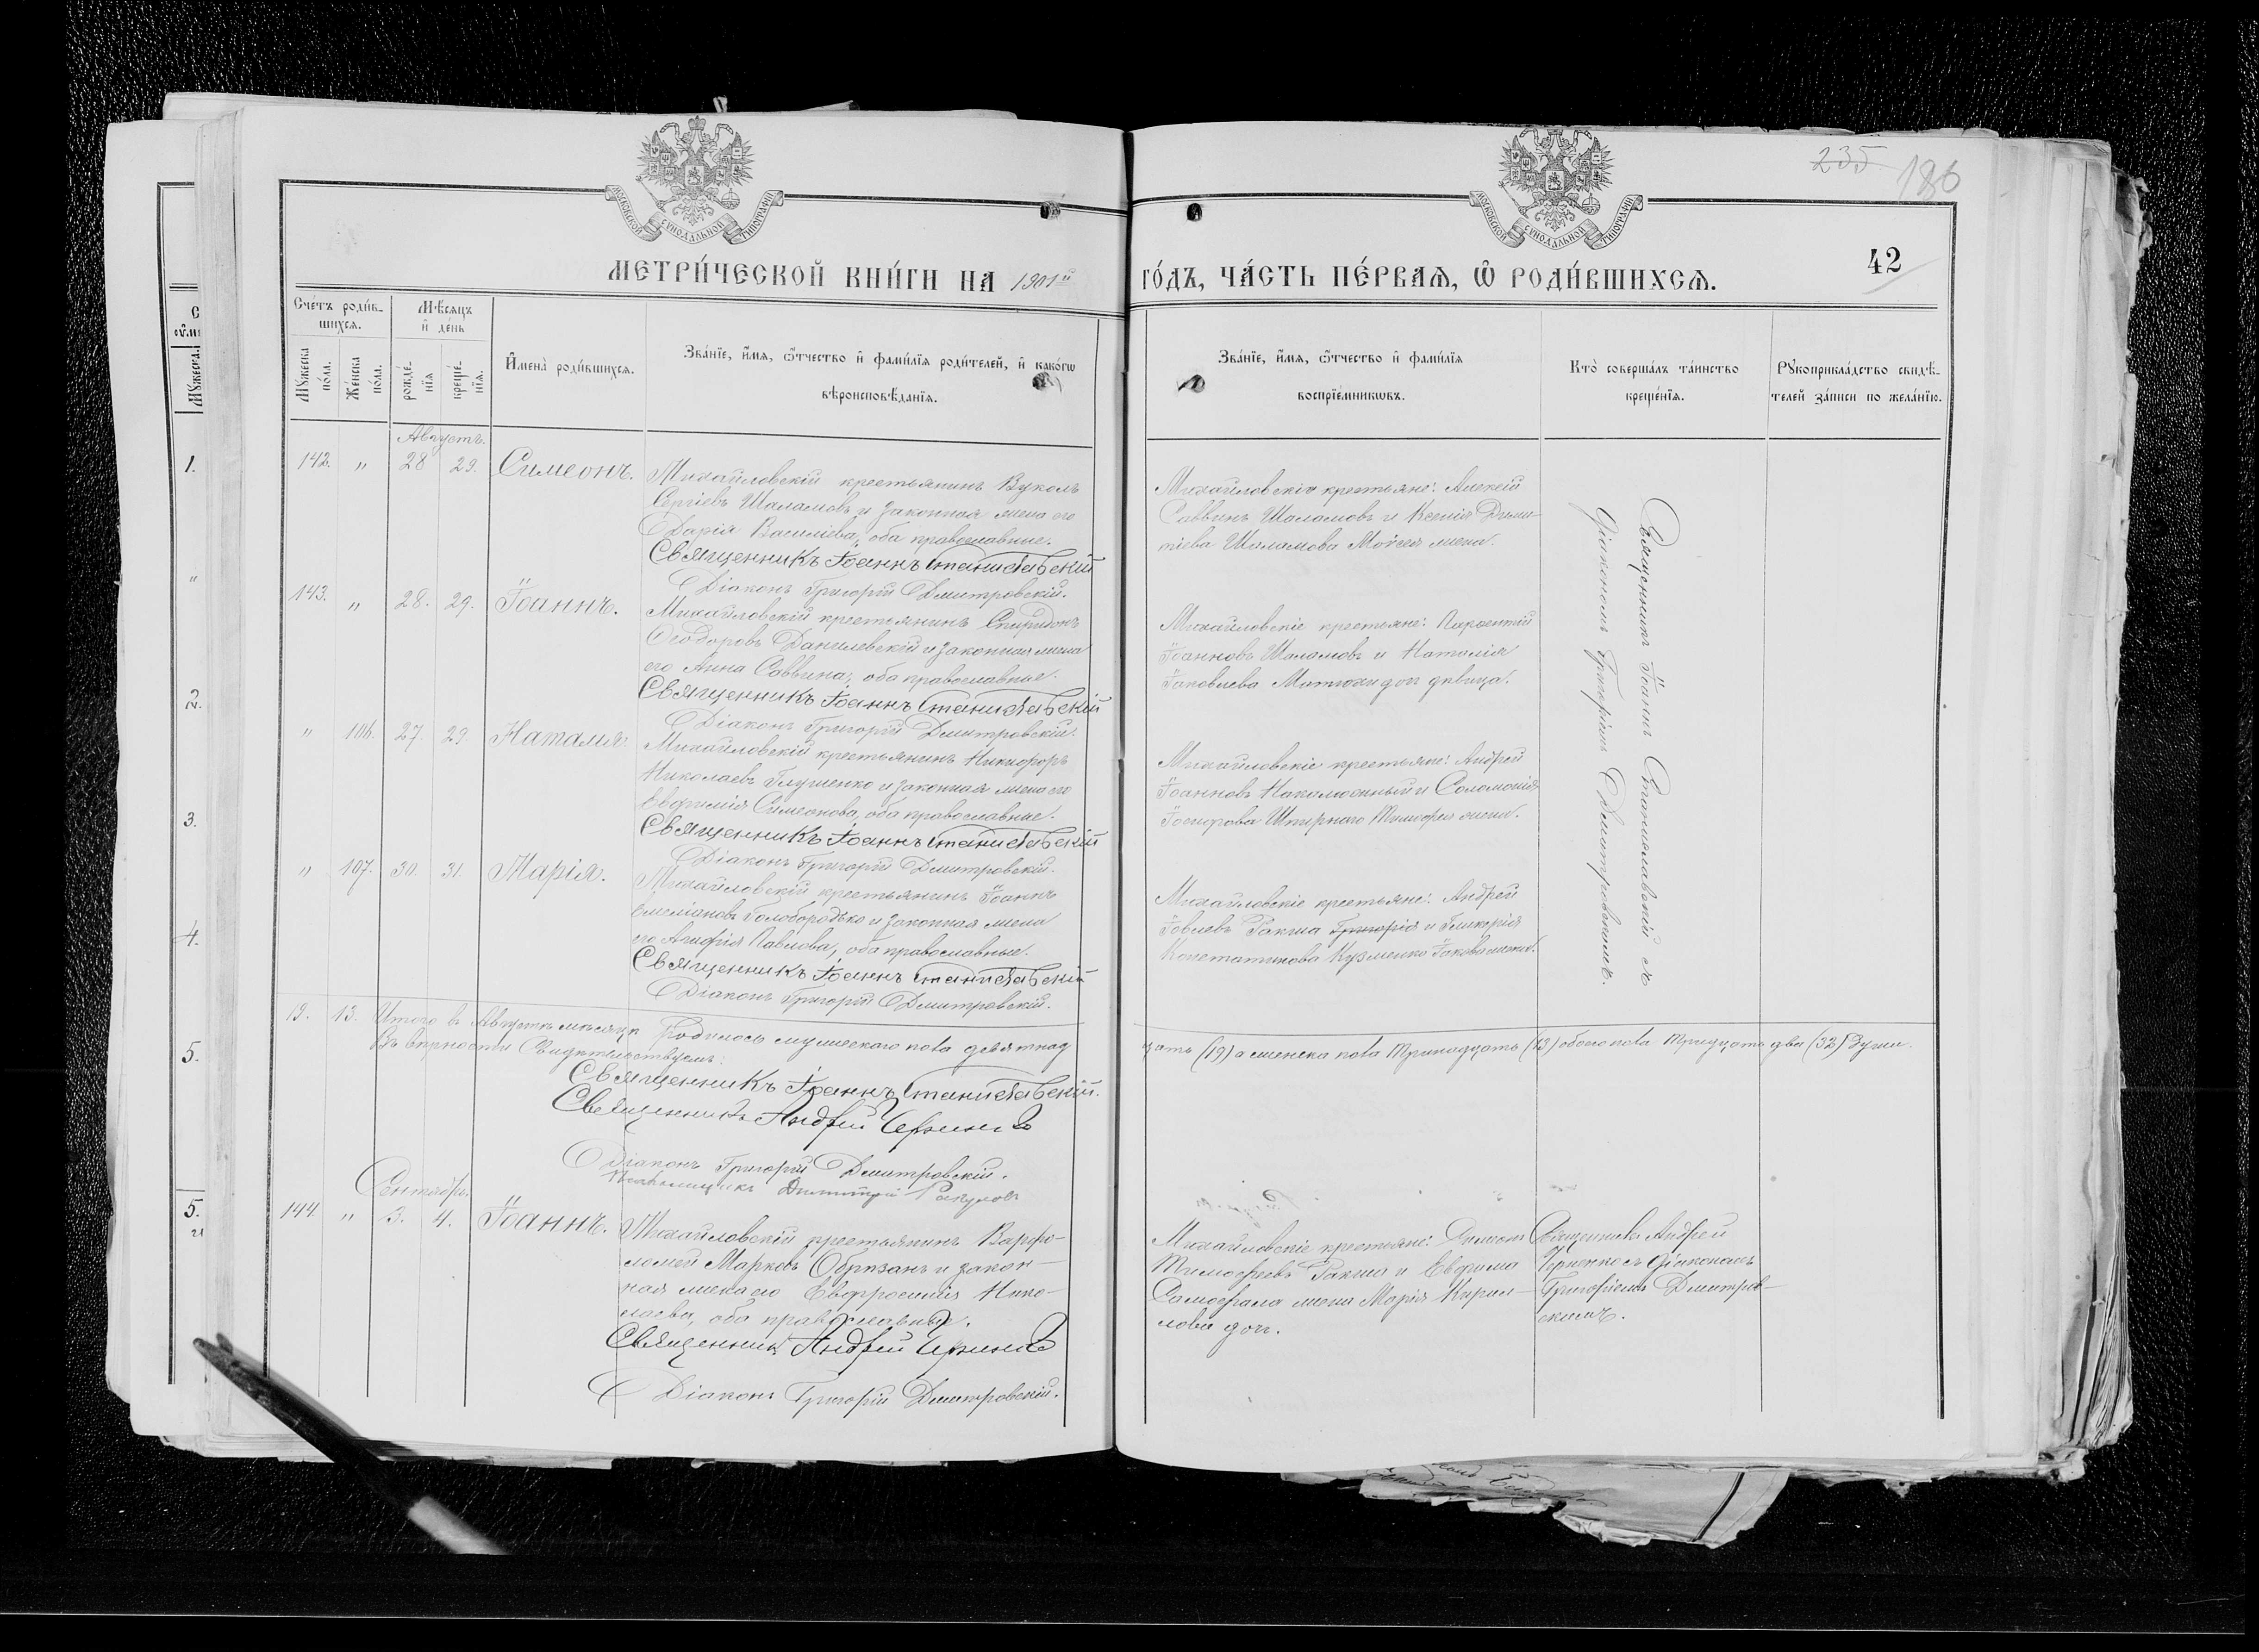 235 186
МОСКОВСКОЙ СѴНОДАЛЬНОЙ ТИПОГРАФІИ
МОСКОВСКОЙ СѴНОДАЛЬНОЙ ТИПОГРАФІИ
42
МЕТРИ́ЧЕСКОЙ КНИ́ГИ НА 1901й
ГО́ДЪ, ЧА́СТЬ ПЕ́РВАѦ, Ѡ РОДИ́ВШИХСѦ.
Сче́тъ роди́в-
шихсѧ.
Мꙋ́жеска
по́ла.
Же́нска
пола.
Мѣ́сѧцъ
и҆ де́нь
рожде́-
нїѧ
креще́-
нїѧ.
И҆мена̀ роди́вшихсѧ.
Зва́нїе, и҆́мѧ, ѻ҆́тчество и҆ фами́лїѧ роди́телей, и҆ како́гѡ
вѣроисповѣ́данїѧ.
Зва́нїе, и҆́мѧ, ѻ҆́тчество и҆ фами́лїѧ
воспрїе́мникѡвъ.
Кто̀ соверша́лъ та́инство
креще́нїѧ.
Рꙋкоприкла́дство свидѣ́-
телей за́писи по жела́нїю.
Августъ.
142. " 28 29. Симеонъ.
Михайловскій крестьянинъ Вуколъ
Сергіевъ Шаламовъ и законная жена его
Дарія Василіева, оба православные.
Священникъ Іоаннъ Станиславскій
Діаконъ Григорій Дмитровскій.
Михайловскіе крестьяне: Алексій
Саввинъ Шаламовъ и Ксенія Дими-
тіева Шаламова Мойсея жена.
Священникъ Іоаннъ Станиславскій съ
діакономъ Григоріемъ Дмитровскимъ.
143. " 28. 29. Іоаннъ.
Михайловскій крестьянинъ Спиридонъ
Ѳеодоровъ Данилевскій и законная жена
его Анна Саввина, оба православные.
Священникъ Іоаннъ Станиславскій
Діаконъ Григорій Дмитровскій.
Михайловскіе крестьяне: Пароентій
Іоанновъ Шаламовъ и Наталія
Іаковлева Матюхи доч дѣвица.
" 106. 27. 29 Наталія.
Михайловскій крестьянинъ Никифоръ
Николаевъ Глушенко и законная жена его
Евфимія Симеонова, оба православные.
Священникъ Іоаннъ Станиславскій
Діаконъ Григорій Дмитровскій.
Михайловскіе крестьяне: Андрей
Іоанновъ и Соломонія
Іосифова Тимофея жена.
" 107. 30. 31. Марія.
Михайловскій крестьянинъ Іоаннъ
Емеліановъ Голобородько и законная жена
его Агафія Павлова, оба православные.
Священникъ Іоаннъ Станиславскій
Діаконъ Григорій Дмитровскій.
Михайловскіе крестьяне: Андрей
Іовлевъ Ракша Григорія и Гликерія
Константинова Кузменко Іакова жена.
19. 13. Итого въ Августѣ мѣсяцѣ родилось мужескаго пола девятнад
цать (19) а женска пола тринадцать (13) обоего пола тридцать два (32) души.
Въ вѣрности свидѣтельствуемъ:
Священникъ Іоаннъ Станиславскій.
Священникъ Андрей
Діаконъ Григорій Дмитровскій.
Псаломщикъ Димитрій
Сентябрь
144 " 3. 4. Іоаннъ.
Михайловскій крестьянинъ Варфо-
ломей Марковъ Обризанъ и закон-
ная жена его Евфросинія Нико-
лаева, оба православные.
Священникъ Андрей
Діаконъ Григорій Дмитровскій.
Михайловскіе крестьяне:
Тимофеевъ Ракша и Евфима
жена Марія Кирил-
лова доч.
Священникъ Андрей
съ діакономъ
Григоріемъ Дмитров-
скимъ.